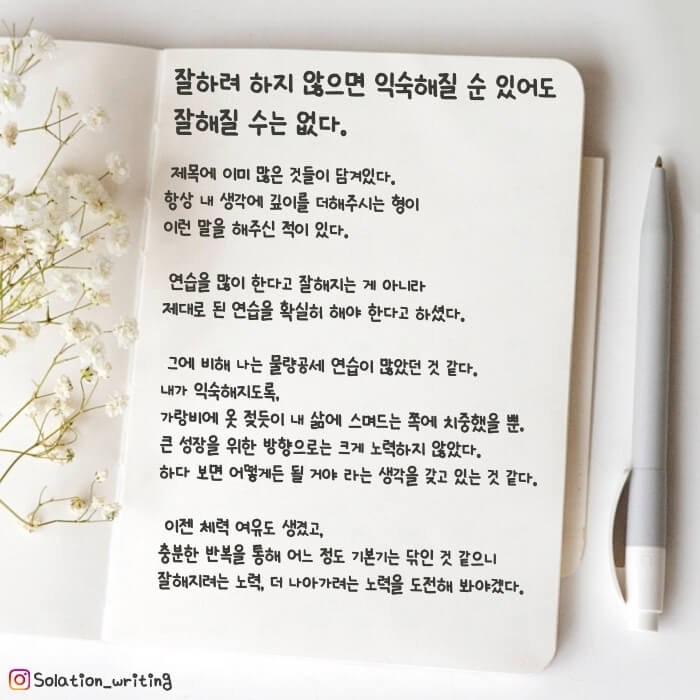 잘하려 하지 않으면 익숙해질 순 있어도
잘해질 수는 없다.
제목에 이미 많은 것들이 담겨있다.
항상 내 생각에 깊이를 더해주시는 형이
이런 말을 해주신 적이 있다.
연습을 많이 한다고 잘해지는 게 아니라
제대로 된 연습을 확실히 해야 한다고 하셨다.
그에 비해 나는 물량공세 연습이 많았던 것 같다.
내가 익숙해지도록,
가랑비에 옷 젖듯이 내 삶에 스며드는 쪽에 치중했을 뿐.
큰 성장을 위한 방향으로는 크게 노력하지 않았다.
하다 보면 어떻게든 될 거야 라는 생각을 갖고 있는 것 같다.
이젠 체력 여유도 생겼고,
충분한 반복을 통해 어느 정도 기본기는 닦인 것 같으니
잘해지려는 노력, 더 나아가려는 노력을 도전해 봐야겠다.
Solation_writing